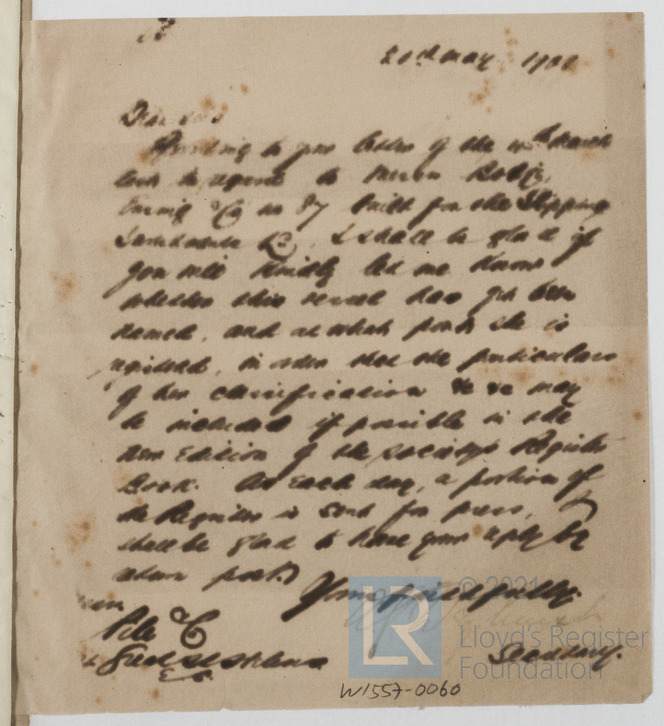 May 1900
Dear Sirs
Referring to your letter of the March
with regard to Messrs
& Co No 87 built for the Shipping
Co, I shall be glad if
you will kindly let me know
whether this vessel has yet been
named, and at what port she is
registered, in order that the particulars
of her classification &c &c may
be included if possible in the
New Edition of the Society's Register
Book. As each day, a portion of
the Register is sent for press, I
shall be glad to have your reply by
return post.
Yours faithfully
Secretary.
© 2021
LR
Lloyd's Register
Foundation
W1557-0060